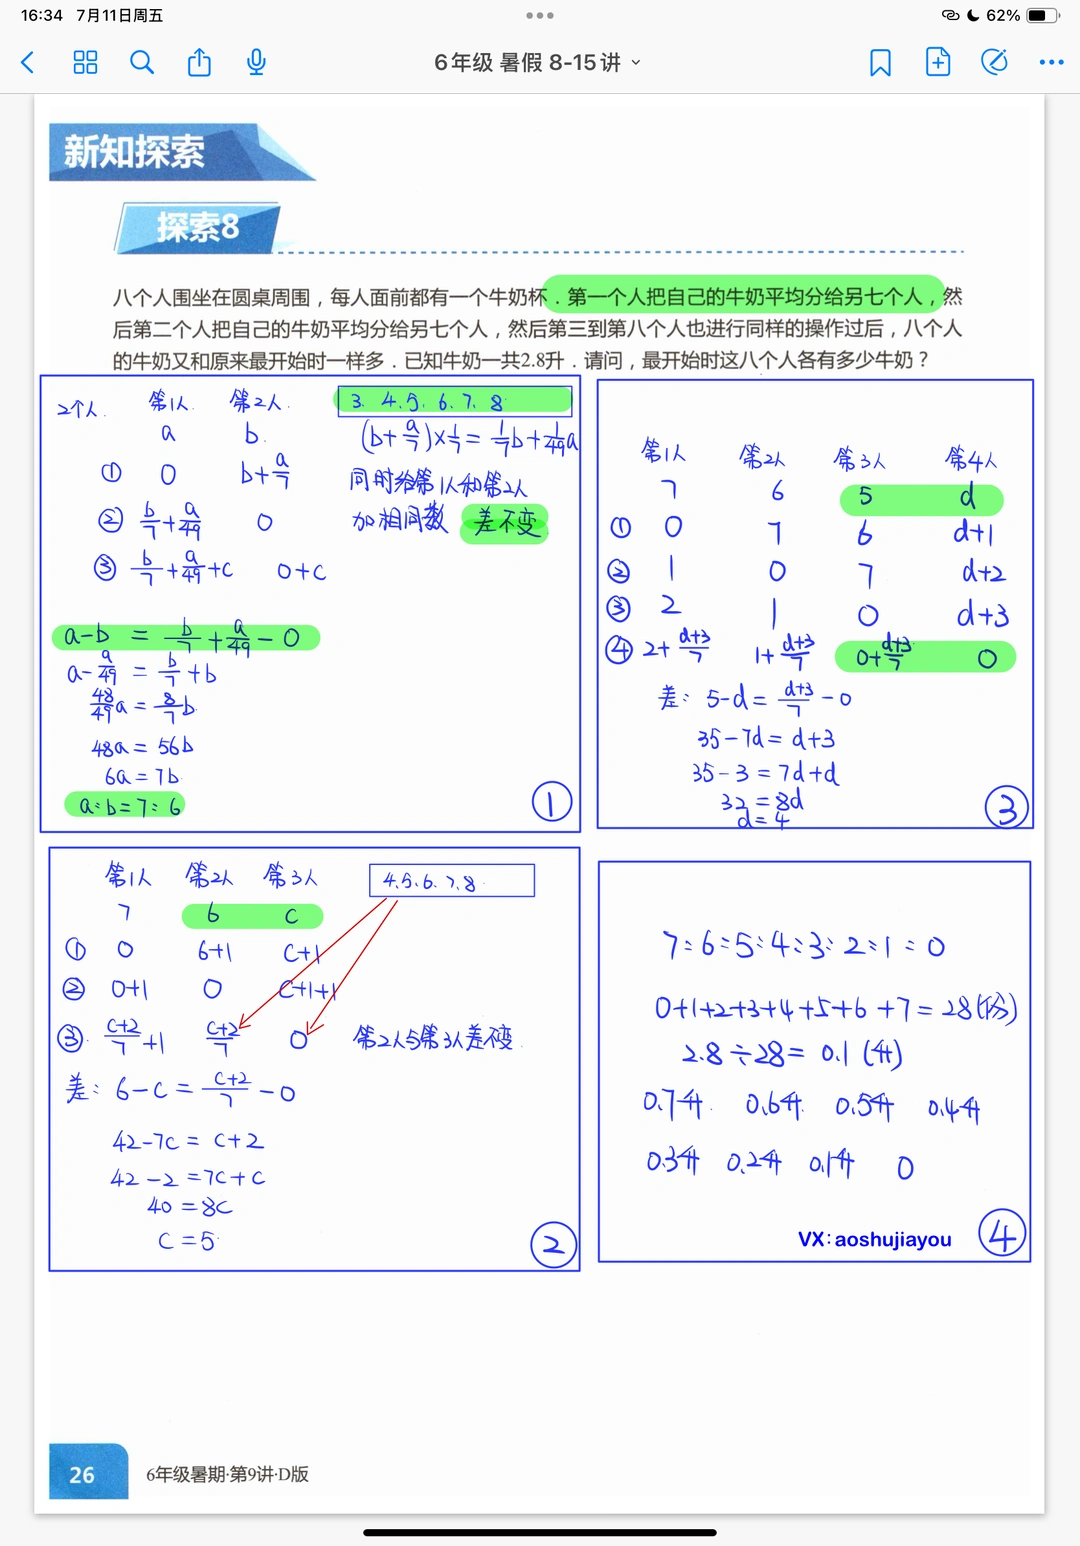 16:34 7月11日周五
62%
6年级 暑假 8-15讲
新知探索
探索8
八个人围坐在圆桌周围，每人面前都有一个牛奶杯．第一个人把自己的牛奶平均分给另七个人，然
后第二个人把自己的牛奶平均分给另七个人，然后第三到第八个人也进行同样的操作过后，八个人
的牛奶又和原来最开始时一样多．已知牛奶一共2.8升．请问，最开始时这八个人各有多少牛奶？
2个人. 第1人. 第2人. 3. 4. 5. 6. 7. 8
a b. (b+a/7)×1/7=1/7b+1/49a
① 0 b+a/7 同时给第1人和第2人
② b/7+a/49 0 加相同数 差不变
③ b/7+a/49+c 0+c
a-b = b/7+a/49-0
a-a/49 = b/7+b
48/49a = 8/7b
48a = 56b
6a = 7b
a:b=7:6
①
第1人 第2人 第3人 第4人
7 6 5 d
① 0 7 6 d+1
② 1 0 7 d+2
③ 2 1 0 d+3
④ 2+d+3/7 1+d+3/7 0+d+3/7 0
差: 5-d=d+3/7-0
35-7d=d+3
35-3=7d+d
32=8d
d=4
③
第1人 第2人 第3人 4.5.6.7.8.
7 6 c
① 0 6+1 c+1
② 0+1 0 c+1+1
③. c+2/7+1 c+2/7 0 第2人与第3人差不变.
差: 6-c=c+2/7-0
42-7c=c+2
42-2=7c+c
40=8c
c=5
②
7:6:5:4:3:2:1:0
0+1+2+3+4+5+6+7=28(份)
2.8÷28=0.1(升)
0.7升. 0.6升 0.5升 0.4升
0.3升 0.2升 0.1升 0
VX:aoshujiayou
④
26
6年级暑期·第9讲·D版